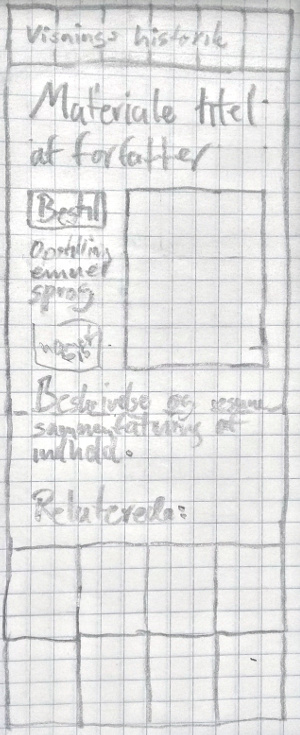 Visnings historik
Materiale titel
af forfatter
Bestil
Opstilling
emner
sprog
Beskrivelse og
sammenfatning af
indhold.
Relaterede: